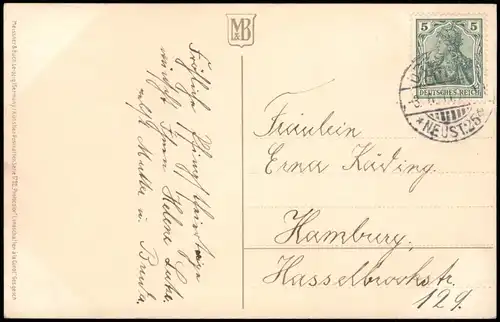 MB
5 5
DEUTSCHES REICH
*NEUST.25*
Fröhliche Pfingstfeiertage
wünscht Ihnen Helene Lühr
nebst Mutter u. Bruder
Fräulein
Erna Käding.
Hamburg,
Hasselbrookstr.
129.